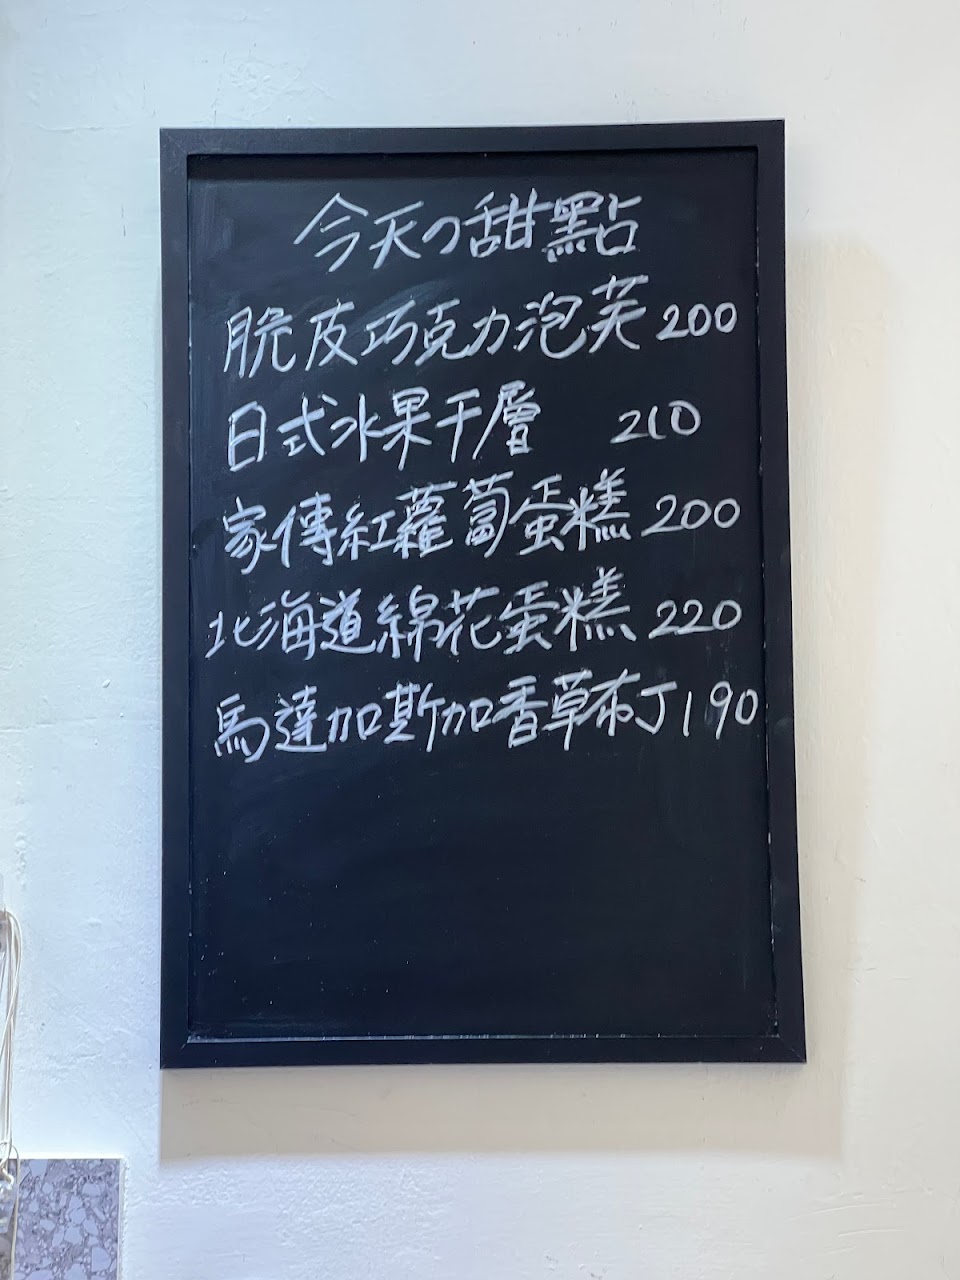 今天の甜點
脆皮巧克力泡芙 200
日式水果千層 210
家傳紅蘿蔔蛋糕 200
北海道綿花蛋糕 220
馬達加斯加香草布丁 190